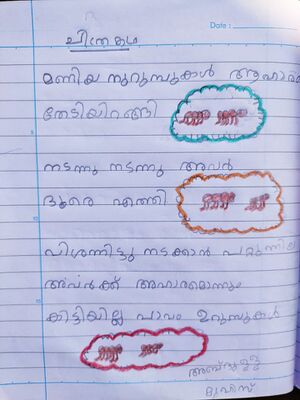 Date :
ചിത്രകഥ
മണിയനുറുമ്പുകൾ ആഹാരം
തേടിയിറങ്ങി
നടന്നു നടന്നു അവർ
ദൂരെ എത്തി
വിശന്നിട്ടു നടക്കാൻ പറ്റുന്നില്ല
അവർക്ക് അഹാരമൊന്നും
കിട്ടിയില്ല പാവം ഉറുമ്പുകൾ
അബ്ദുള്ള